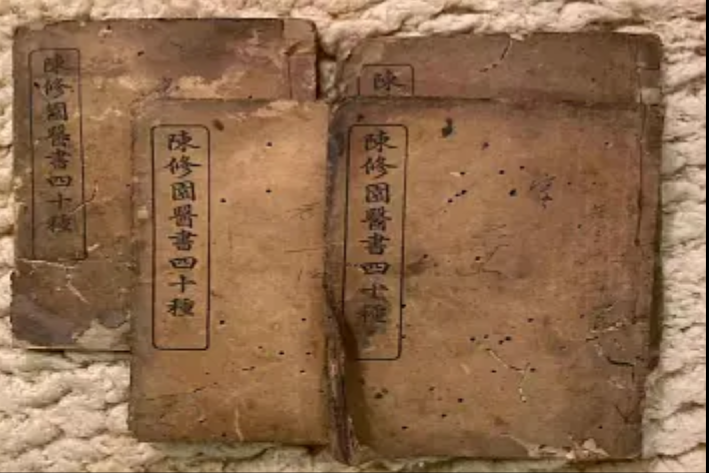 陳修園醫書四十種
陳修園醫書四十種
陳
陳修園醫書四十種